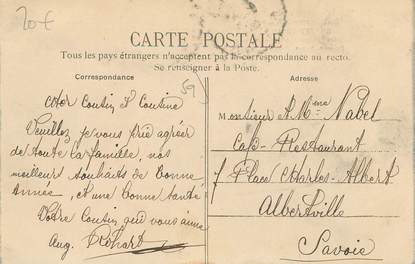 20f
CARTE POSTALE
Tous les pays étrangers n'acceptent pas la correspondance au recto.
Se renseigner à la Poste.
Correspondance
59
Cher Cousin & Cousine
Veuillez je vous prie agréer
de toute la famille, nos
meilleurs souhaits de bonne
Année, et une bonne santé
Votre Cousin qui vous aime
Aug.
Adresse
Monsieur & Mme Nabet
Café-Restaurant
Place Charles-Albert
Albertville
Savoie